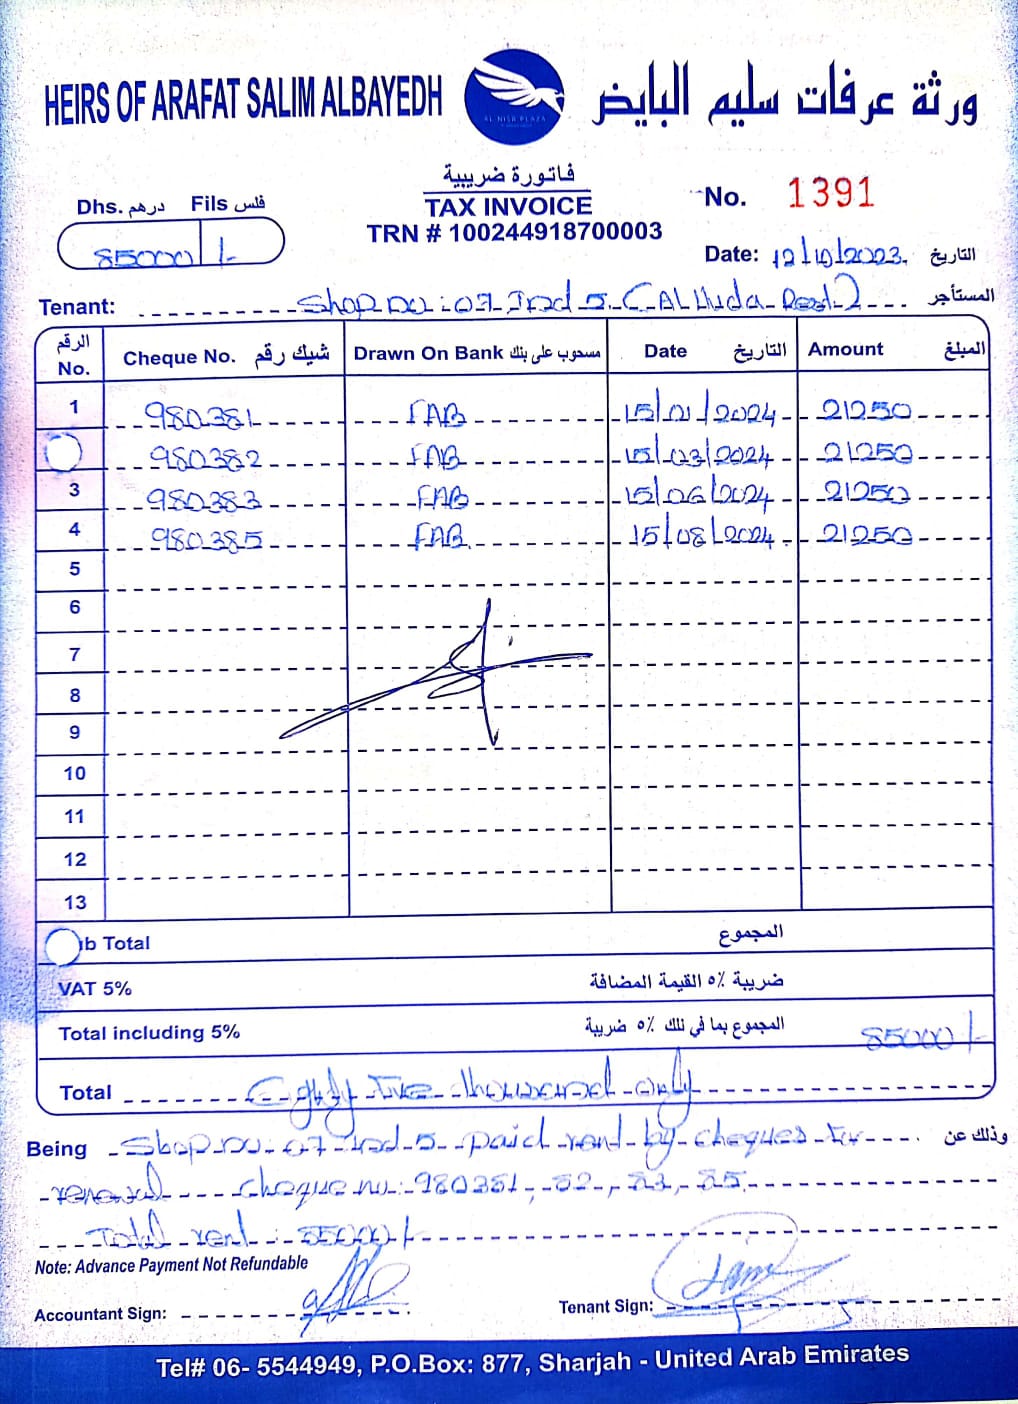 HEIRS OF ARAFAT SALIM ALBAYEDH
ورثة عرفات سليم البايض
AL NISR PLAZA
فاتورة ضريبية
TAX INVOICE
TRN # 100244918700003
Dhs. درهم Fils فلس
85000/-
No. 1391
Date: 12/10/2023. التاريخ
Tenant: Shop no: 07 Ind 5 ( AL Huda Road 2 المستأجر
الرقم No. Cheque No. شيك رقم Drawn On Bank مسحوب على بنك Date التاريخ Amount المبلغ
1 980381 FAB 15/01/2024 21250
980382 FAB 15/03/2024 21250
3 980383 FAB 15/06/2024 21250
4 980385 FAB 15/08/2024 21250
5
6
7
8
9
10
11
12
13
b Total المجموع
VAT 5% ضريبة ٥٪ القيمة المضافة
Total including 5% المجموع بما في ذلك ٥٪ ضريبة 85000/-
Total Eighty Five thousand only
Being Shop no 07 Ind-5 paid rent by cheques for وذلك عن
renewal cheque no: 980381, 82, 83, 85.
Total rent: 85000/-
Note: Advance Payment Not Refundable
Accountant Sign: Tenant Sign:
Tel# 06- 5544949, P.O.Box: 877, Sharjah - United Arab Emirates